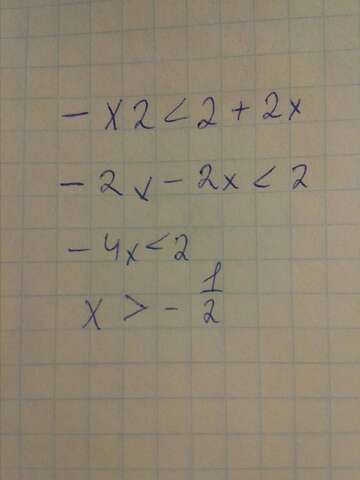 - x2 < 2 + 2x
- 2x - 2x < 2
- 4x < 2
x > - 1/2